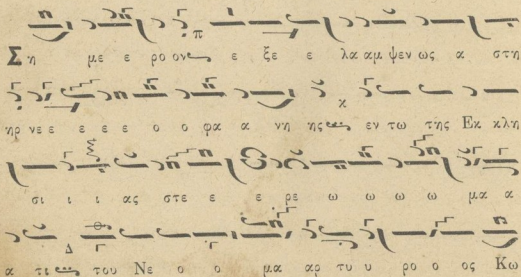 Ση με ε ρο ον ε ξε ε λα αμ ψεν ως α στη
ηρ νε ε ε ε ε ο ο φα α νη ης εν τω της Εκ κλη
σι ι ι ας στε ε ε ρε ω ω ω ω μα α
α τι του Νε ο ο μα αρ τυ υ ρο ο ος Κω